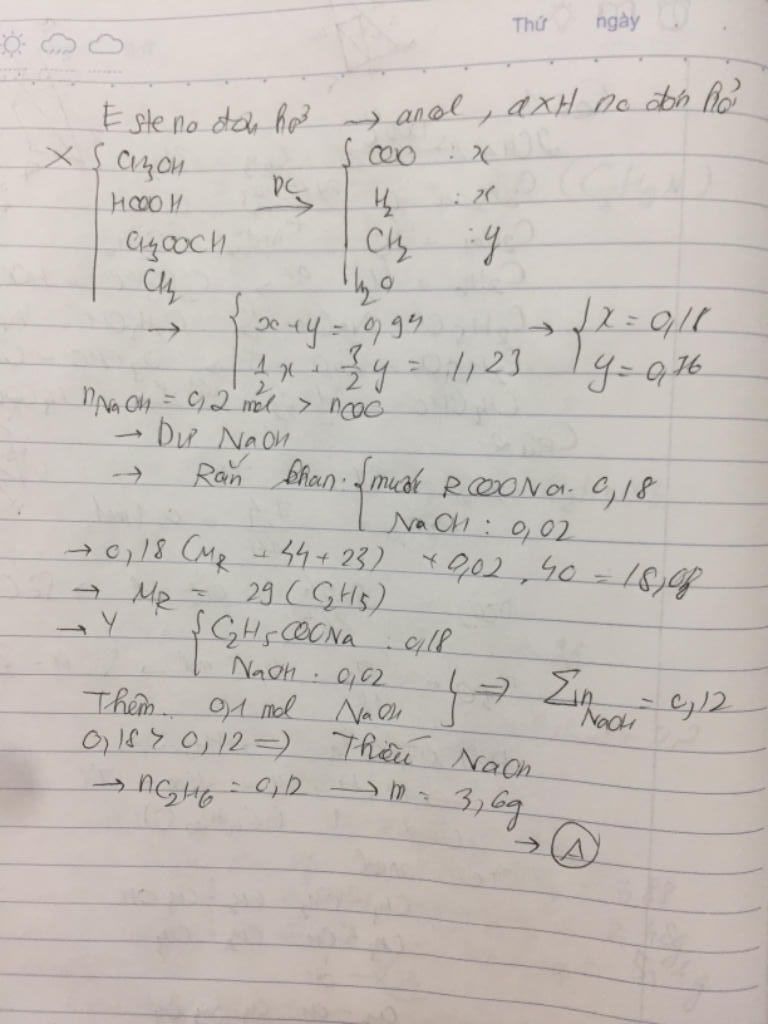 Thứ ngày
Este no đơn hở → ancol, axH no đơn hở
X { CH3OH { COO : x
HCOOH ĐC → H2 : x
CH3OOCH CH2 : y
CH2 H2O
→ { x + y = 0,94 → { x = 0,18
1/2 x + 3/2 y = 1,23 y = 0,76
nNaOH = 0,2 mol > nCOO
→ Dư NaOH
→ Rắn khan. { muối RCOONa. 0,18
NaOH : 0,02
→ 0,18 (MR + 44 + 23) + 0,02 . 40 = 18,08
→ MR = 29 (C2H5)
→ Y { C2H5COONa : 0,18
NaOH : 0,02 } => ΣnNaOH = 0,12
Thêm 0,1 mol NaOH
0,18 > 0,12 => Thiếu NaOH
→ nC2H6 = 0,12 → m = 3,6g
→ A